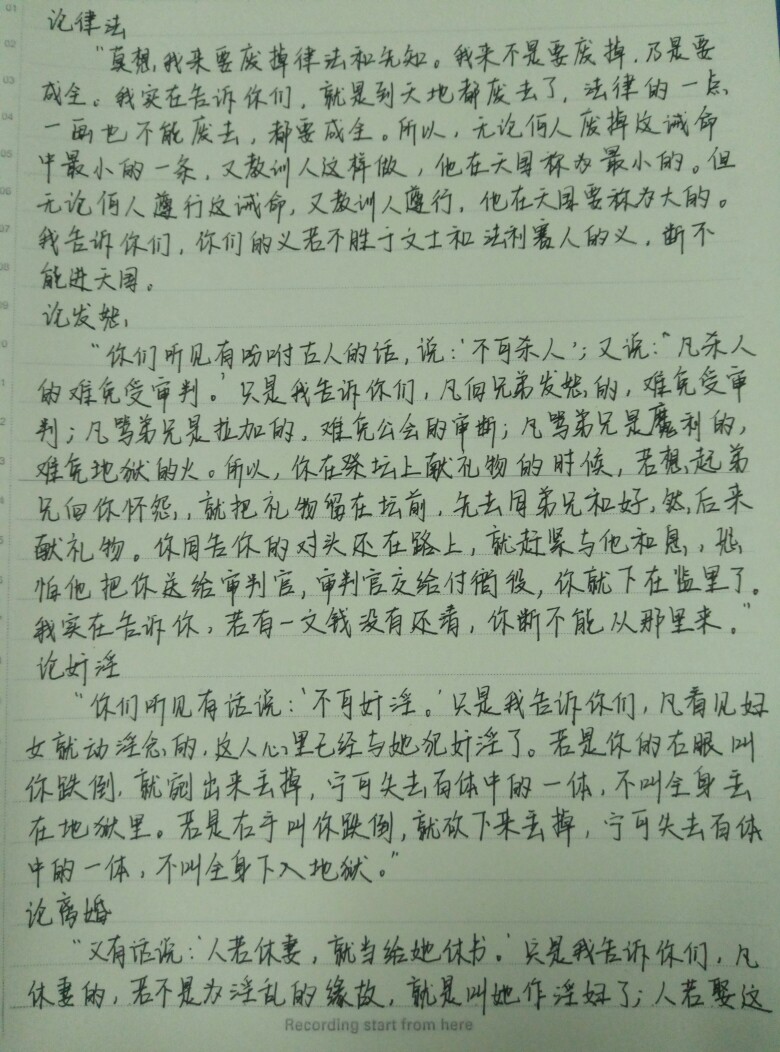 论律法
“莫想我来要废掉律法和先知。我来不是要废掉，乃是要
成全。我实在告诉你们，就是到天地都废去了，法律的一点
一画也不能废去，都要成全。所以，无论何人废掉这诫命
中最小的一条，又教训人这样做，他在天国称为最小的。但
无论何人遵行这诫命，又教训人遵行，他在天国要称为大的。
我告诉你们，你们的义若不胜于文士和法利赛人的义，断不
能进天国。
论发怒
“你们听见有吩咐古人的话，说：‘不可杀人’；又说：“凡杀人
的难免受审判。’只是我告诉你们，凡向兄弟发怒的，难免受审
判；凡骂弟兄是拉加的，难免公会的审断；凡骂弟兄是魔利的，
难免地狱的火。所以，你在祭坛上献礼物的时候，若想起弟
兄向你怀怨，就把礼物留在坛前，先去同弟兄和好，然后来
献礼物。你同告你的对头还在路上，就赶紧与他和息，恐
怕他把你送给审判官，审判官交给付衙役，你就下在监里了。
我实在告诉你，若有一文钱没有还清，你断不能从那里来。”
论奸淫
“你们听见有话说：‘不可奸淫。’只是我告诉你们，凡看见妇
女就动淫念的，这人心里已经与她犯奸淫了。若是你的右眼叫
你跌倒，就剜出来丢掉，宁可失去百体中的一体，不叫全身丢
在地狱里。若是右手叫你跌倒，就砍下来丢掉，宁可失去百体
中的一体，不叫全身下入地狱。”
论离婚
“又有话说：‘人若休妻，就当给她休书。’只是我告诉你们，凡
休妻的，若不是为淫乱的缘故，就是叫她作淫妇了；人若娶这
Recording start from here